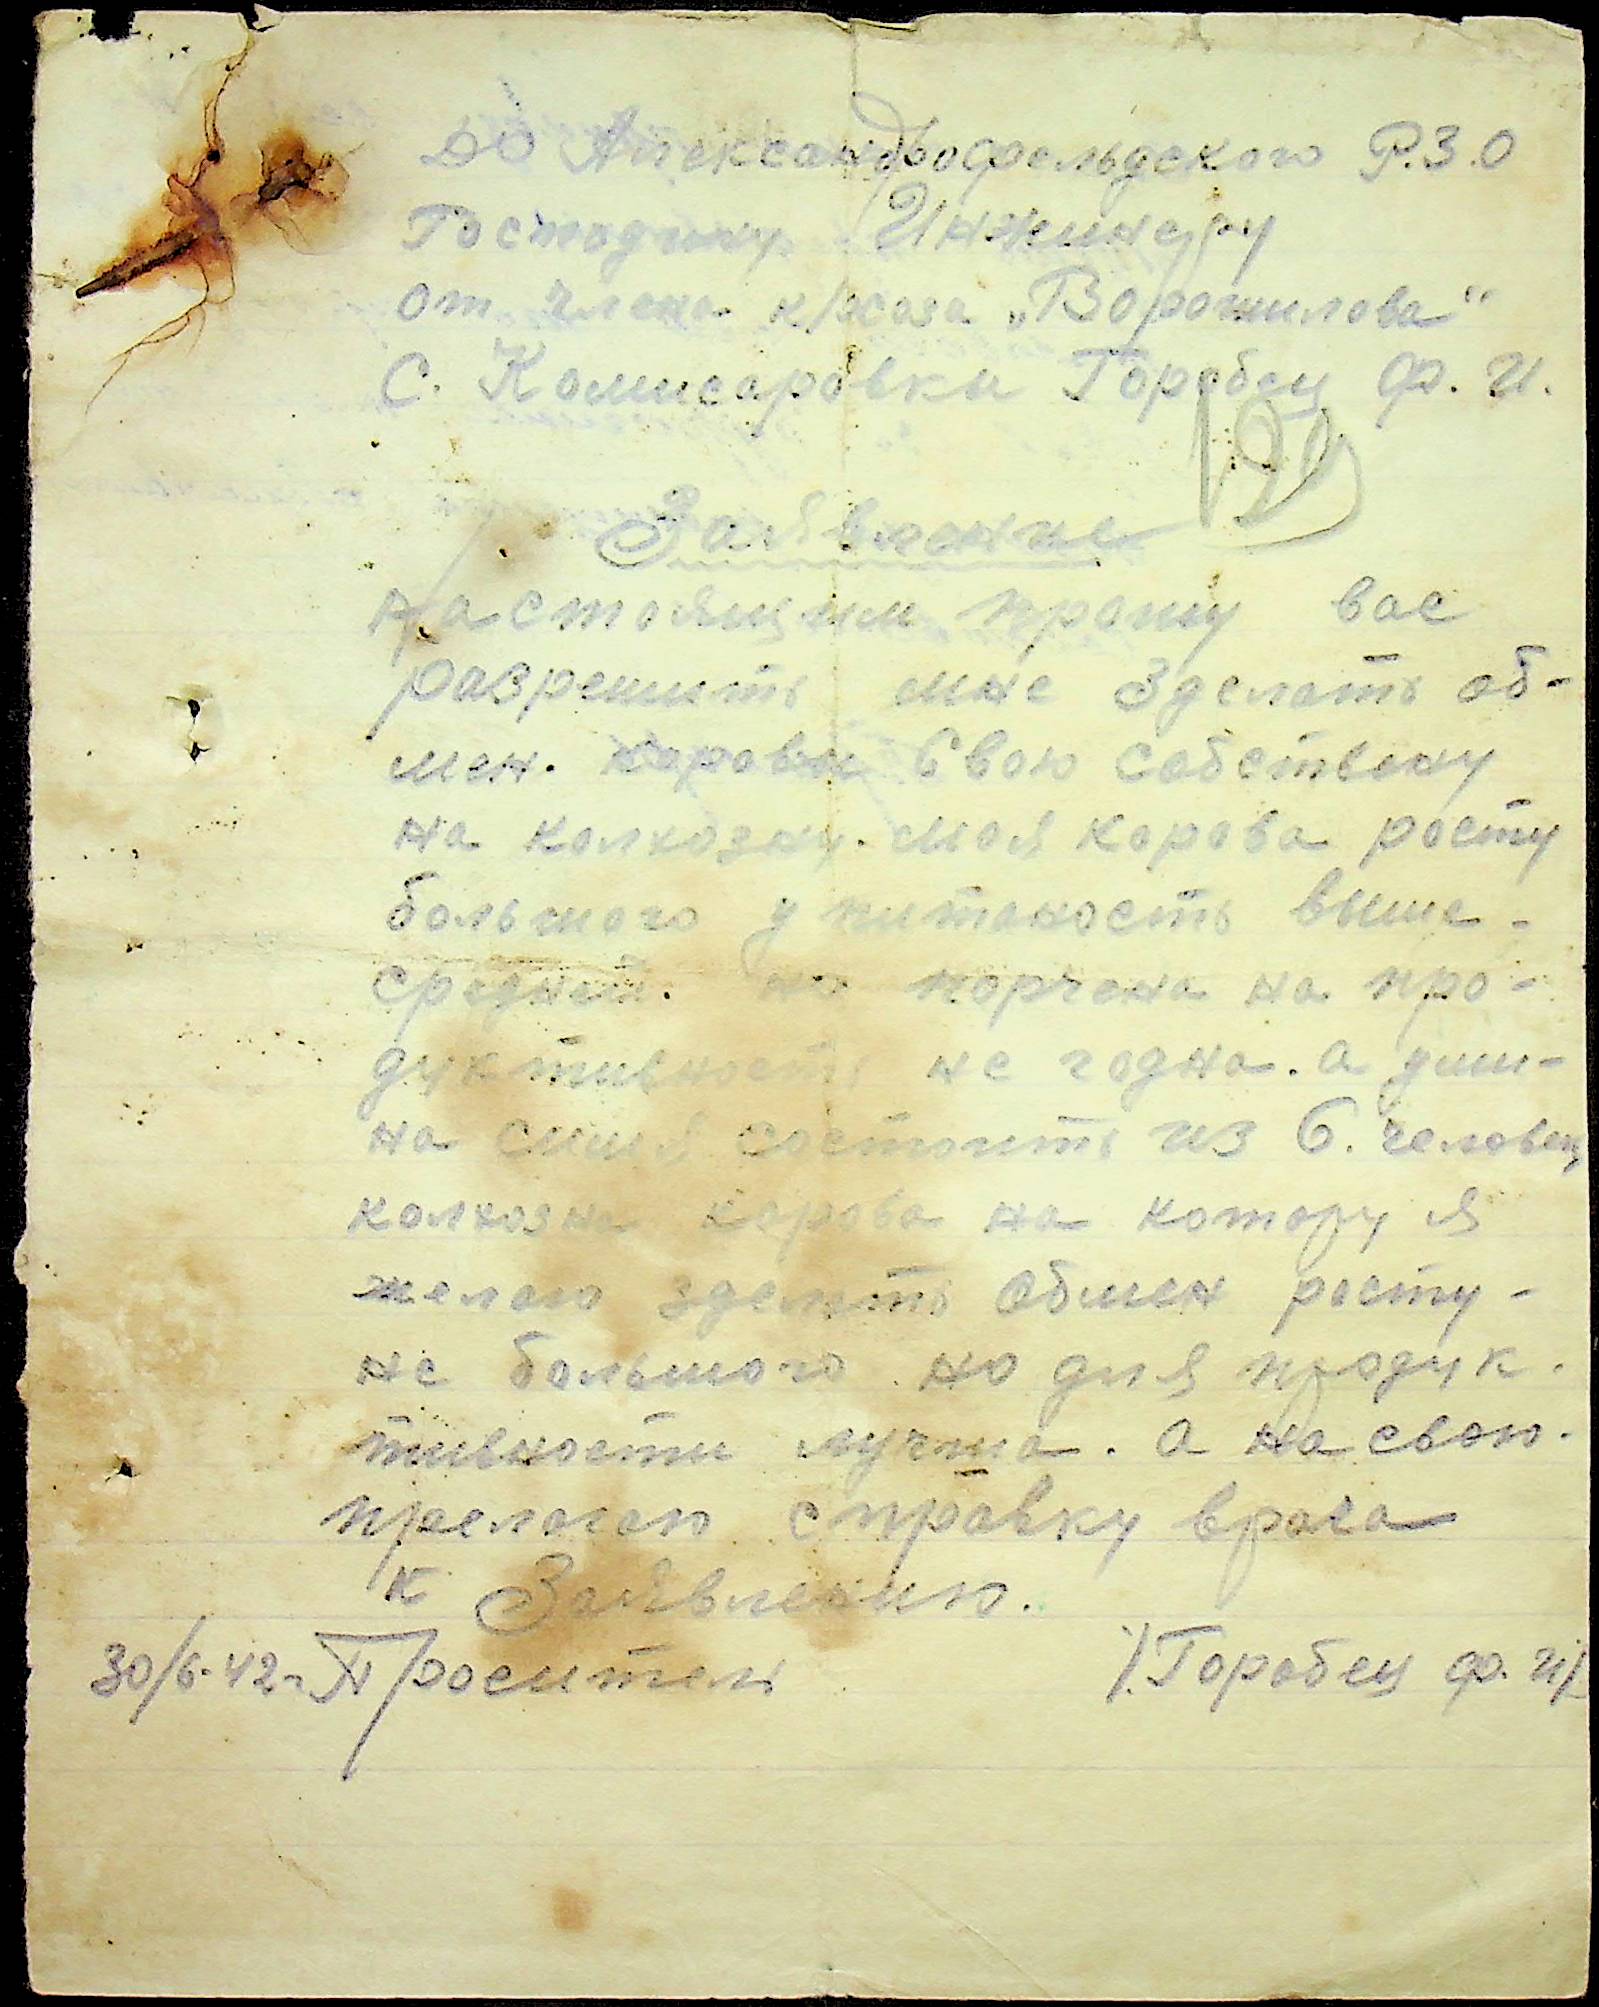 До Александрофельдского Р.З.О
Господину Инжинеру
от члена к/хоза „Ворошилова“
С. Комисаровки Горобец Ф. И.
Заявление
настоящим прошу вас
разрешить мне зделать об-
мен. коровы Свою собствену
на колхозну. Моя корова росту
большого упитаность выше-
средней. но порчена на про-
дуктивность не годна. а уми-
на симя состоить из 6. человек
колхозна корова на котору я
желаю зделать обмен росту-
не большого но для продук.
тивности лучша. а на свою.
прелогаю справку врача
к Заявлению.
30/6-42г Проситель /.Горобец Ф. И/